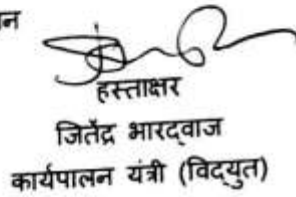 न
हस्ताक्षर
जितेंद्र भारद्वाज
कार्यपालन यंत्री (विद्युत)